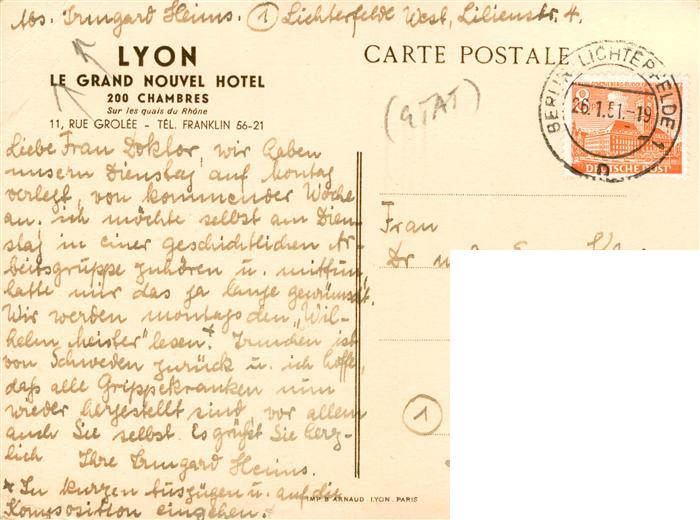 Abs. Irmgard Heims. ① Lichterfelde West, Lilienstr. 4.
LYON
LE GRAND NOUVEL HOTEL
200 CHAMBRES
Sur les quais du Rhône
11, RUE GROLÉE - TÉL. FRANKLIN 56-21
CARTE POSTALE
BERLIN-LICHTERFELDE 1
26.1.51.-19
8
DEUTSCHE POST
Liebe Frau Doktor, wir haben
unsern Dienstag auf Montag
verlegt, von kommender Woche
an. ich möchte selbst am Dien-
stag in einer geschichtlichen Ar-
beitsgruppe zuhören u. mittun,
hatte mir das ja lange gewünscht.
Wir werden montags den "Wil-
helm Meister" lesen. + Irmchen ist
von Schweden zurück u. ich hoffe,
daß alle Grippekranken nun
wieder hergestellt sind, vor allem
auch Sie selbst. Es grüßt Sie herz-
lich Ihre Irmgard Heims.
+ In kurzen Auszügen u. auf die
Komposition eingehen. +
Frau
Dr
①
IMP. B ARNAUD LYON. PARIS